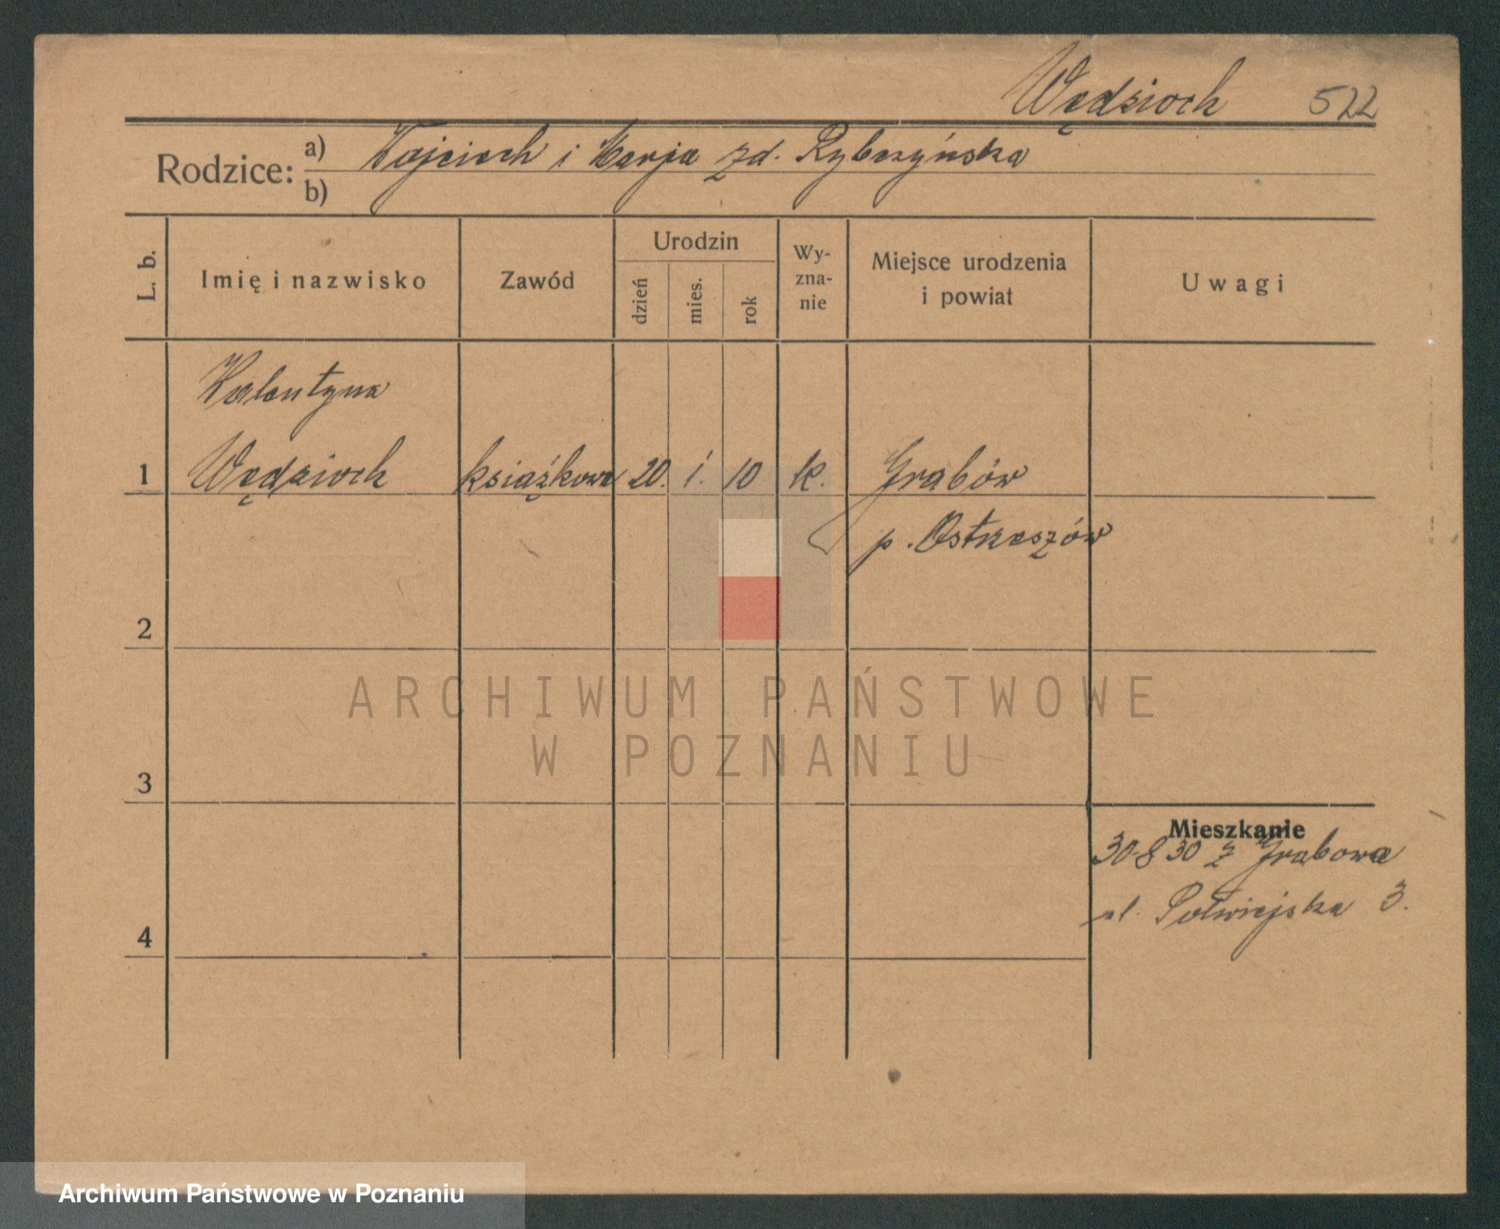 Wędzioch 522
Rodzice: a) Wojciech i Marja zd. Rybczyńska
b)
L. b. Imię i nazwisko Zawód Urodzin dzień mies. rok Wyznanie Miejsce urodzenia i powiat Uwagi
Walentyna
1 Wędzioch książkowa 20. 1. 10 k. Grabów
p. Ostrzeszów
2
ARCHIWUM PAŃSTWOWE
W POZNANIU
3
Mieszkanie
30 8 30 z Grabowa
ul. Półwiejska 3.
4
Archiwum Państwowe w Poznaniu